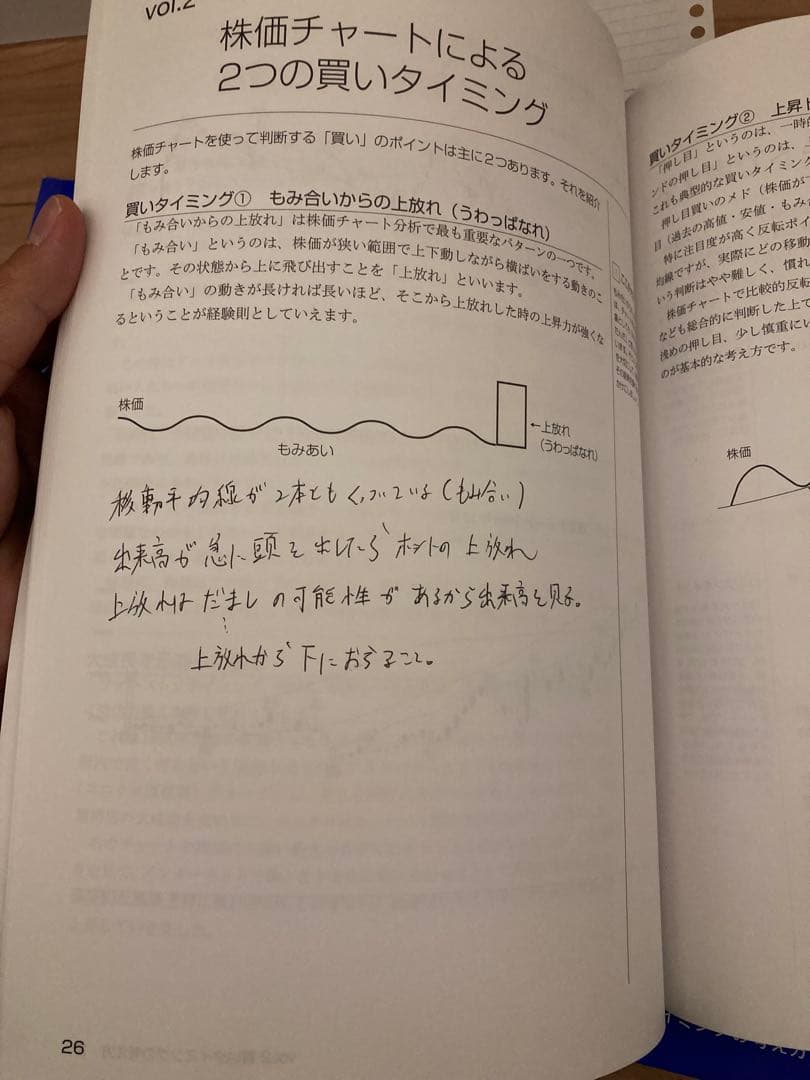 vol.2
株価チャートによる
2つの買いタイミング
株価チャートを使って判断する「買い」のポイントは主に2つあります。それを紹介
します。
買いタイミング① もみ合いからの上放れ（うわっぱなれ）
「もみ合いからの上放れ」は株価チャート分析で最も重要なパターンの一つです。
「もみ合い」というのは、株価が狭い範囲で上下動しながら横ばいをする動きのこ
とです。その状態から上に飛び出すことを「上放れ」といいます。
「もみ合い」の動きが長ければ長いほど、そこから上放れした時の上昇力が強くな
るということが経験則としていえます。
株価
もみあい
←上放れ
（うわっぱなれ）
移動平均線が2本ともくっついている（もみ合い）
出来高が急に頭を出してたらホントの上放れ
上放れはだましの可能性があるから出来高を見る。
上放れから下におちること。
26
買いタイミング② 上昇
「押し目」というのは、一時的
ンドの押し目」というのは、
これも典型的な買いタイミング
押し目買いのメド（株価が
目（過去の高値・安値・もみ合
特に注目度が高く反転ポイ
均線ですが、実際にどの移動
いう判断はやや難しく、慣れ
株価チャートで比較的反転
なども総合的に判断した上で
浅めの押し目、少し慎重にい
のが基本的な考え方です。
株価